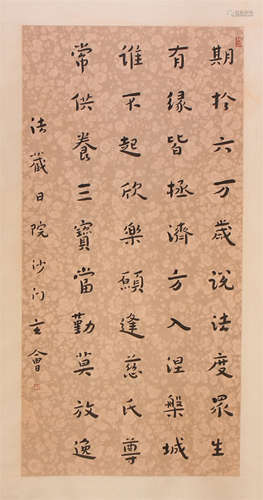 期於六万歳說法度眾生
有緣皆拯濟方入涅槃城
誰不起欣樂願逢慈氏尊
常供養三寶當勤莫放逸
法藏日院沙门玄會